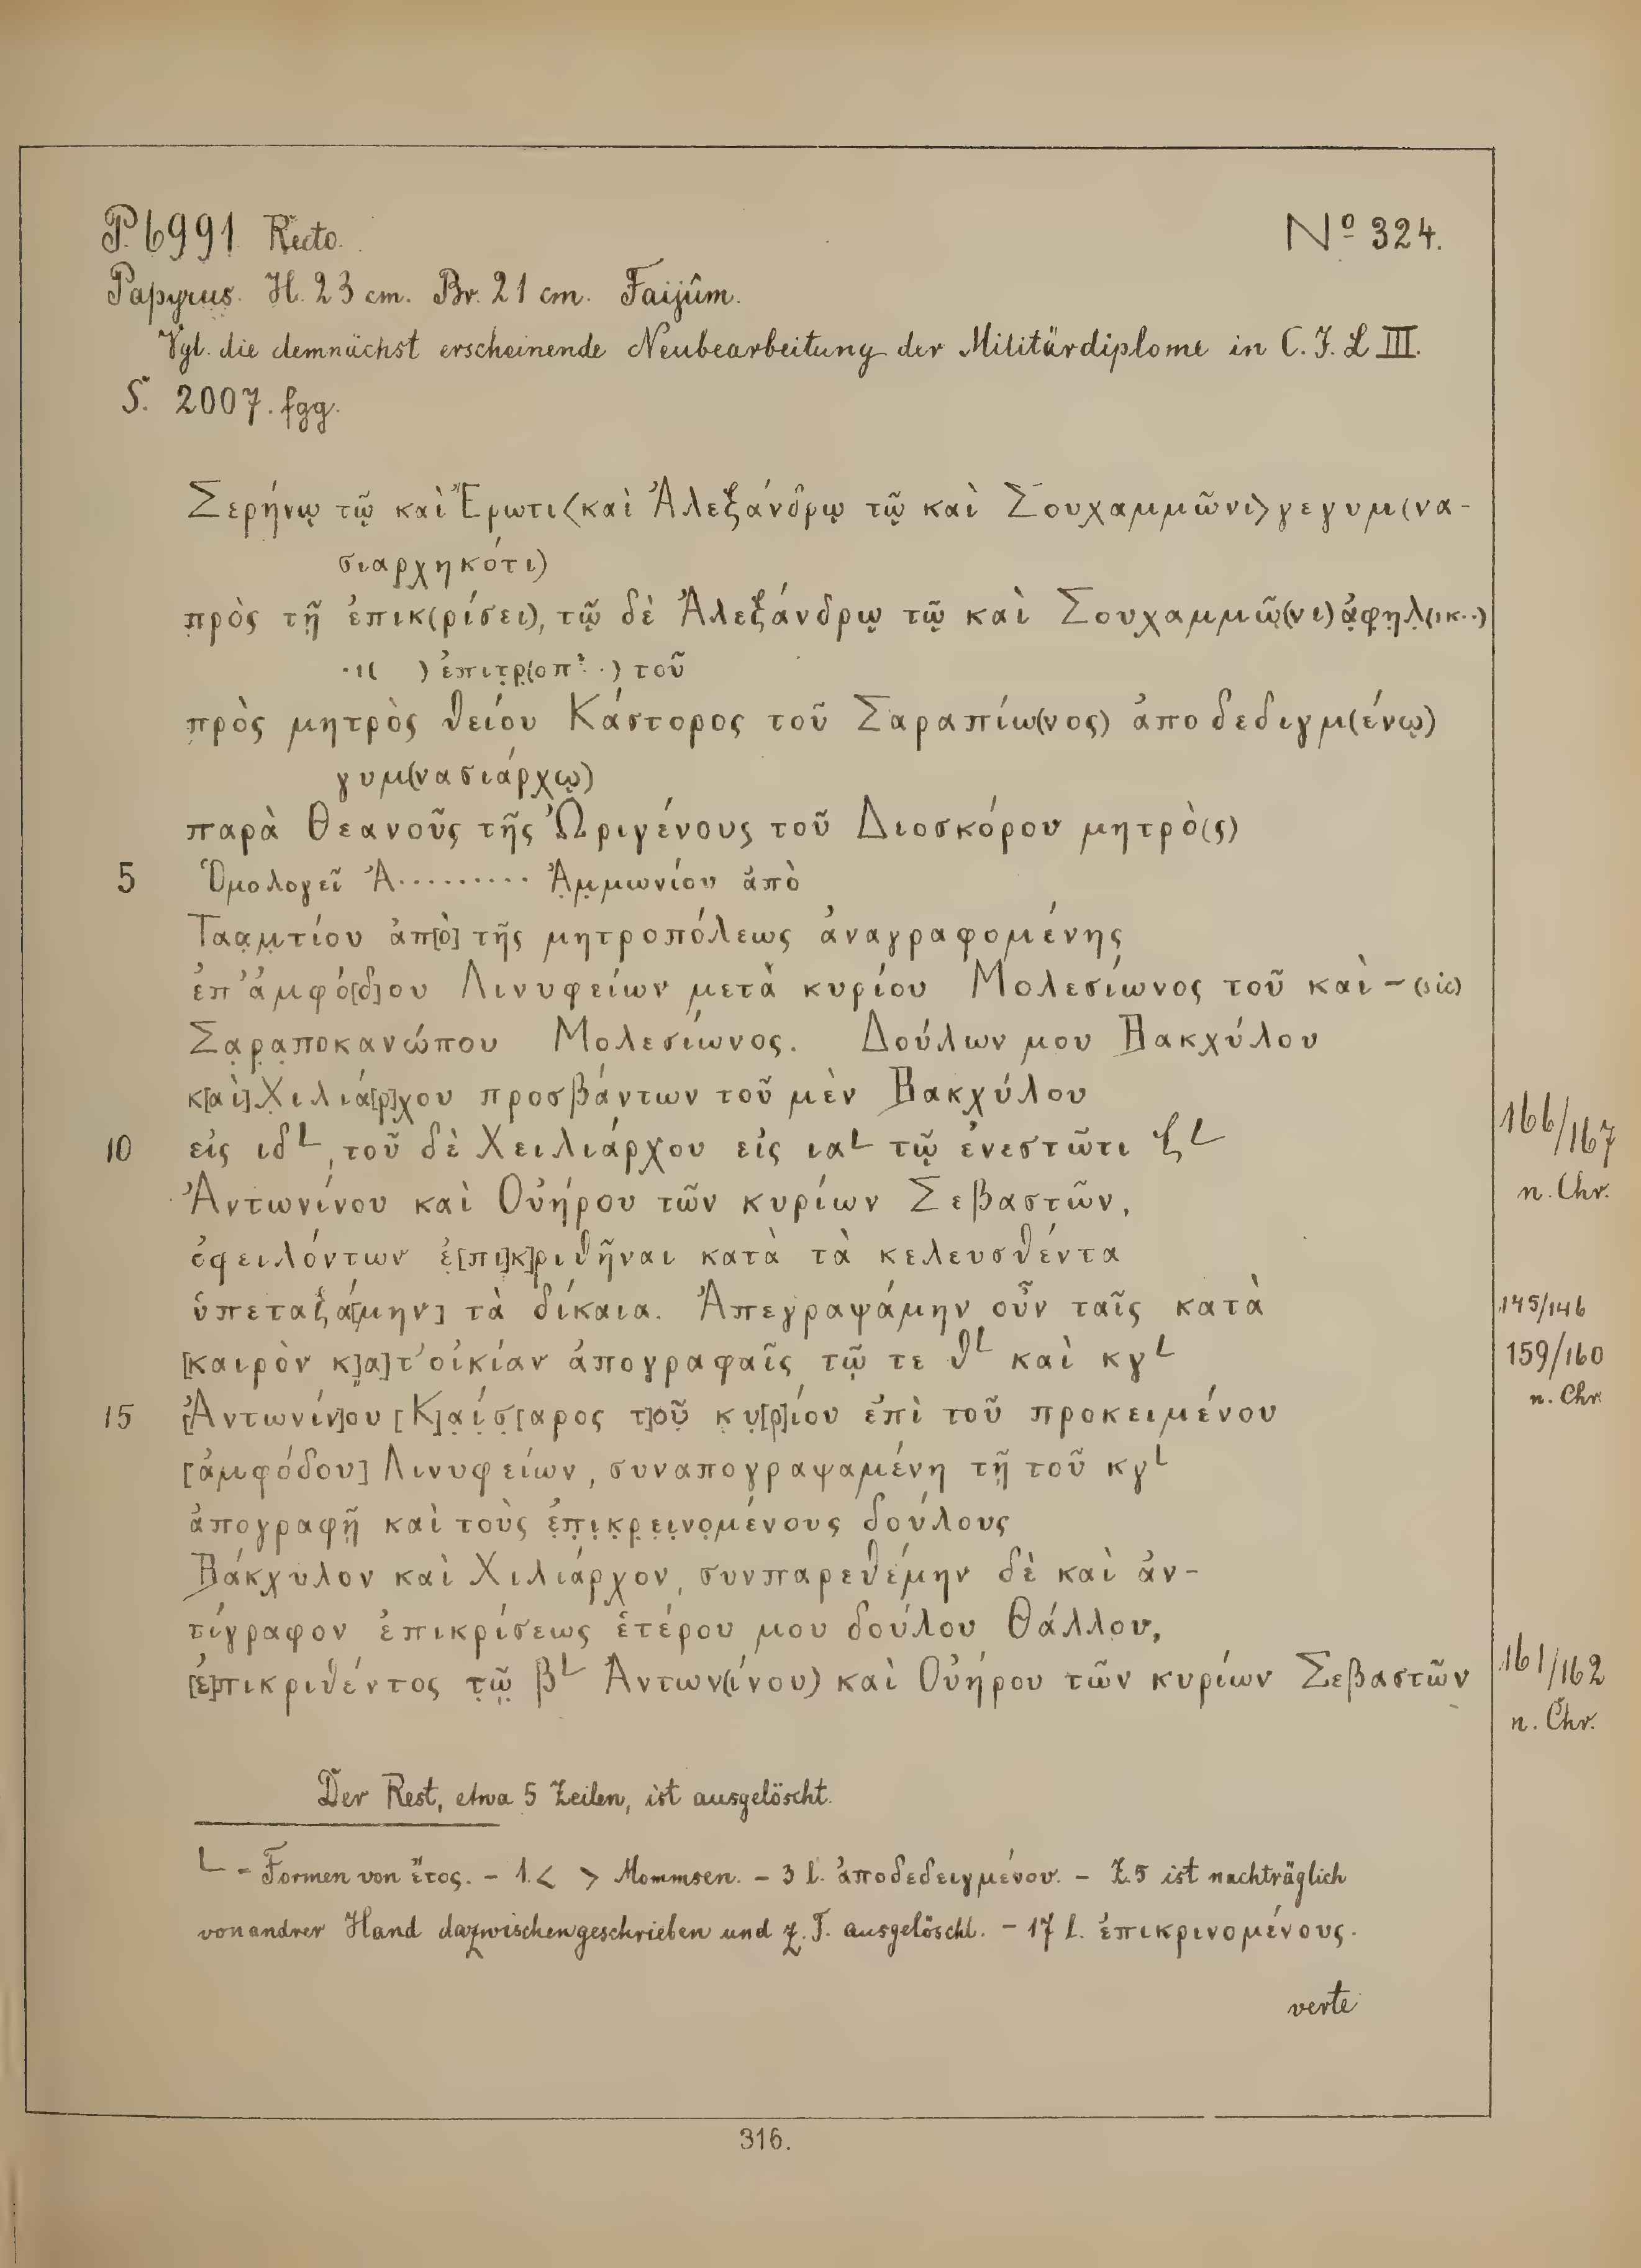 P. 6991 Recto.
No 324.
Papyrus. H. 23 cm. Br. 21 cm. Faijûm.
Vgl. die demnächst erscheinende Neubearbeitung der Militärdiplome in C. I. L III.
S. 2007. fgg.
Σερήνῳ τῷ καὶ Ἔρωτι<καὶ Ἀλεξάνδρῳ τῷ καὶ Σουχαμμῶνι>γεγυμ(να-
σιαρχηκότι)
πρὸς τῇ ἐπικ(ρίσει), τῷ δὲ Ἀλεξάνδρῳ τῷ καὶ Σουχαμμῶ(νι) ἀ̣φ̣η̣λ̣(ικ..)
.ι( ) ἐπιτ̣ρ̣(οπ ..) τοῦ
πρὸς μητρὸς θείου Κάστορος τοῦ Σαραπίω(νος) ἀποδεδιγμ(ένῳ)
γυμ(νασιάρχῳ)
παρὰ Θεανοῦς τῆς Ὠριγένους τοῦ Διοσκόρου μητρὸ(ς)
5 Ὁμολογεῖ Ἀ......... Ἀ̣μ̣μωνίου ἀπὸ
Ταα̣μ̣τίου ἀπ[ὸ] τῆς μητροπόλεως ἀναγραφομένης
ἐπ' ἀμφό[δ]ου Λινυφείων μετὰ κυρίου Μολεσίωνος τοῦ καὶ - (sic)
Σα̣ρ̣α̣ποκανώπου Μολεσίωνος. Δούλων μου Βακχύλου
κ[αὶ] Χ̣ιλιά[ρ]χου προσβάντων τοῦ μὲν Βακχύλου
166/167
10 εἰς ιδ L, τοῦ δὲ Χειλιάρχου εἰς ια L τῷ ἐνεστῶτι ζ L
n. Chr.
Ἀντωνίνου καὶ Οὐήρου τῶν κυρίων Σεβαστῶν,
ὀφειλόντων ἐ̣[πι]κ]ριθῆναι κατὰ τὰ κελευσθέντα
ὑπεταξά[μην] τὰ δίκαια. Ἀπεγραψάμην οὖν ταῖς κατὰ
145/146
[καιρὸν κ]α̣]τ' οἰκίαν ἀπογραφαῖς τῷ τε θ L καὶ κγ L
159/160
n. Chr.
15 [Ἀντωνίν]ου [Κ]α̣ί̣σ̣[αρος τ]οῦ̣ κυ̣[ρ]ίου ἐπὶ τοῦ προκειμένου
[ἀμφόδου] Λινυφείων, συναπογραψαμένη τῇ τοῦ κγ L
ἀπογραφῇ καὶ τοὺς ἐ̣π̣ι̣κ̣ρ̣ε̣ι̣νο̣μένους δούλους
Βάκχυλον καὶ Χιλιάρχον, συνπαρεθέμην δὲ καὶ ἀν-
τίγραφον ἐπικρίσεως ἑτέρου μου δούλου Θάλλου,
161/162
[ἐ]πικριθέντος τ̣ῷ̣ β L Ἀντων(ίνου) καὶ Οὐήρου τῶν κυρίων Σεβαστῶν
n. Chr.
Der Rest, etwa 5 Zeilen, ist ausgelöscht.
L - Formen von ἔτος. - 1. < > Mommsen. - 3 l. ἀποδεδειγμένου. - Z. 5 ist nachträglich
von andrer Hand dazwischengeschrieben und z. T. ausgelöscht. - 17 l. ἐπικρινομένους.
verte
316.